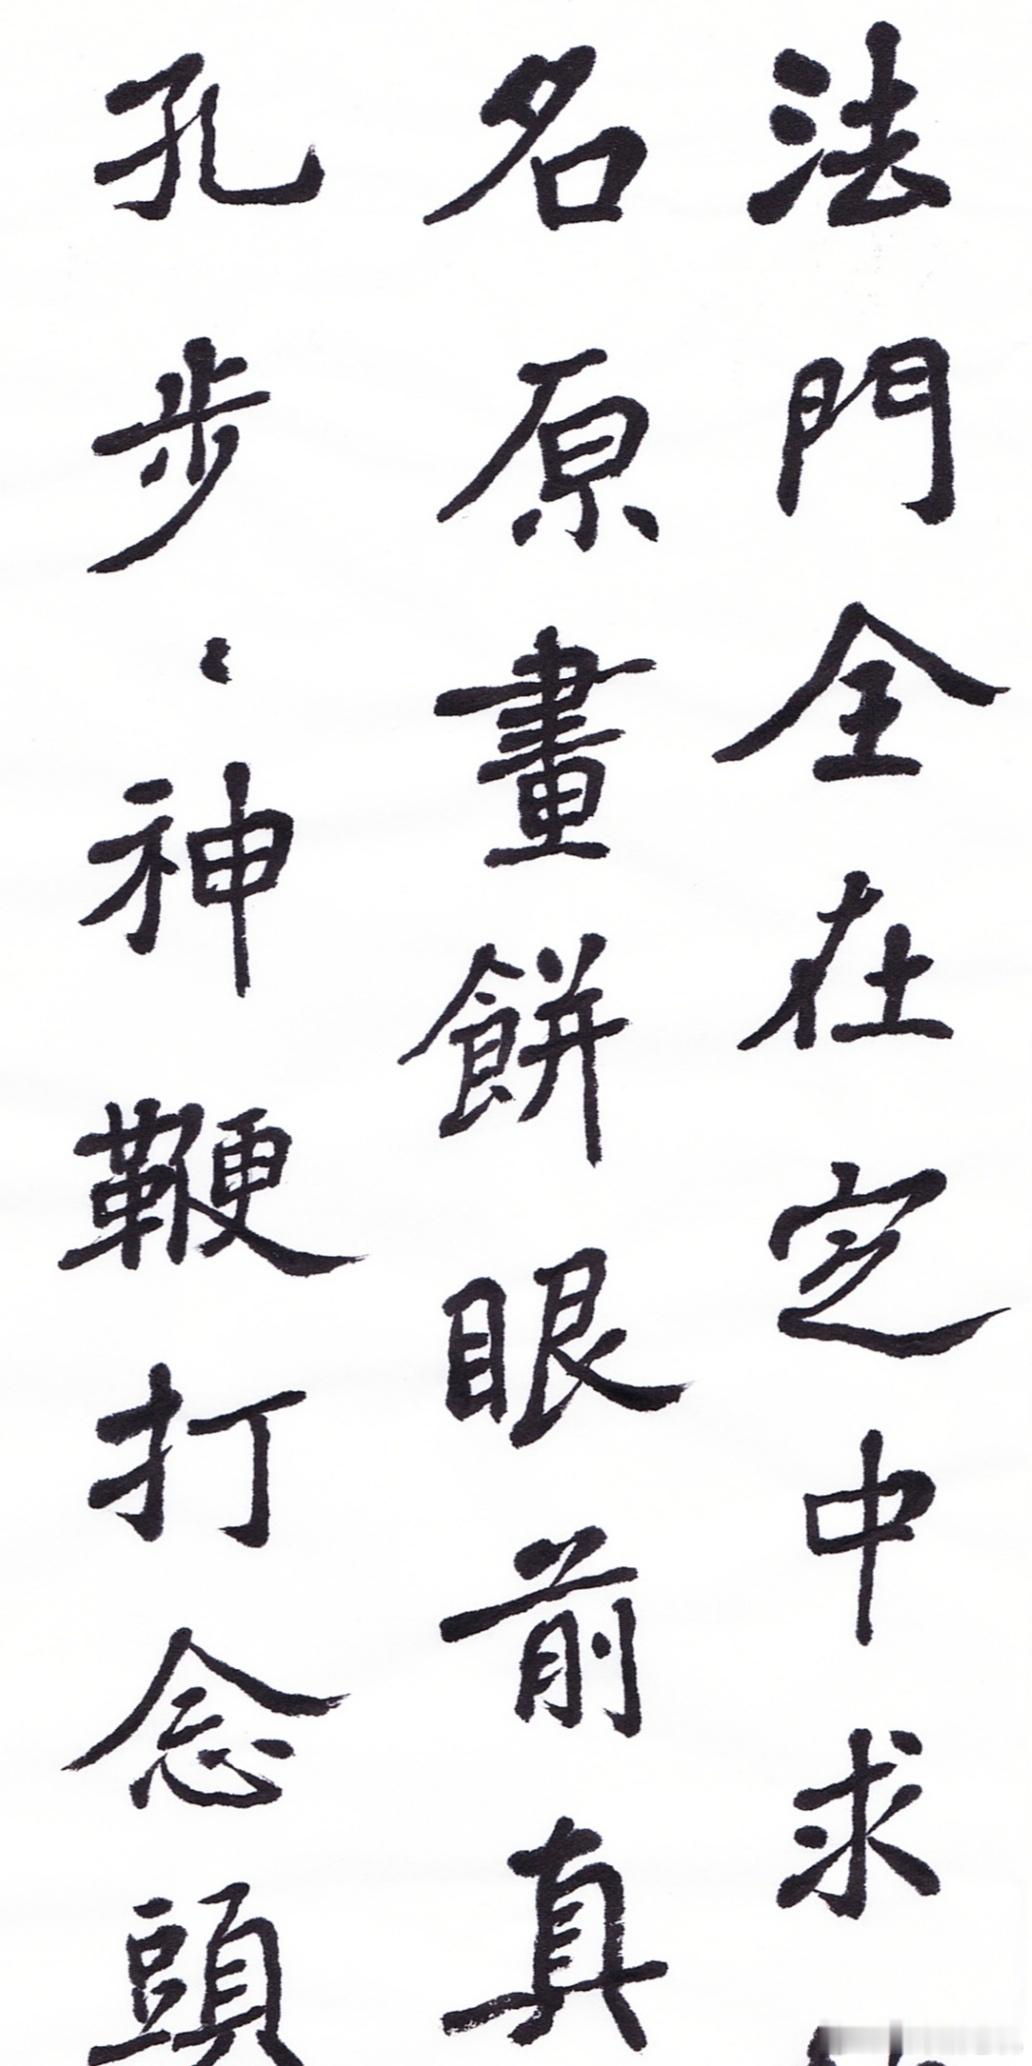 法門全在定中求
名原畫餅眼前真
孔步〻神鞭打念頭